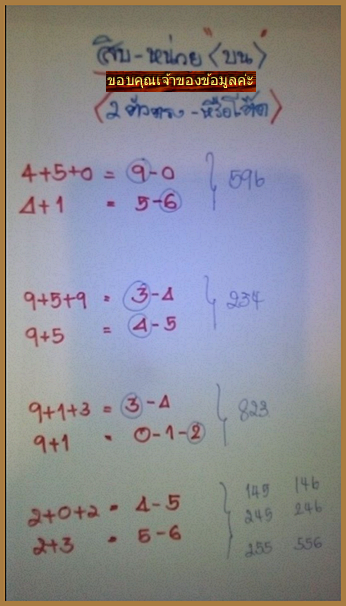 สิบ-หน่วย (บน)
ขอบคุณเจ้าของข้อมูลค่ะ
(2 ตัวตรง-หรือโต๊ด)
4+5+0 = 9-0 } 596
4+1 = 5-6
9+5+9 = 3-4 } 234
9+5 = 4-5
9+1+3 = 3-4 } 823
9+1 = 0-1-2
2+0+2 = 4-5 } 145 146
245 246
2+3 = 5-6 255 556